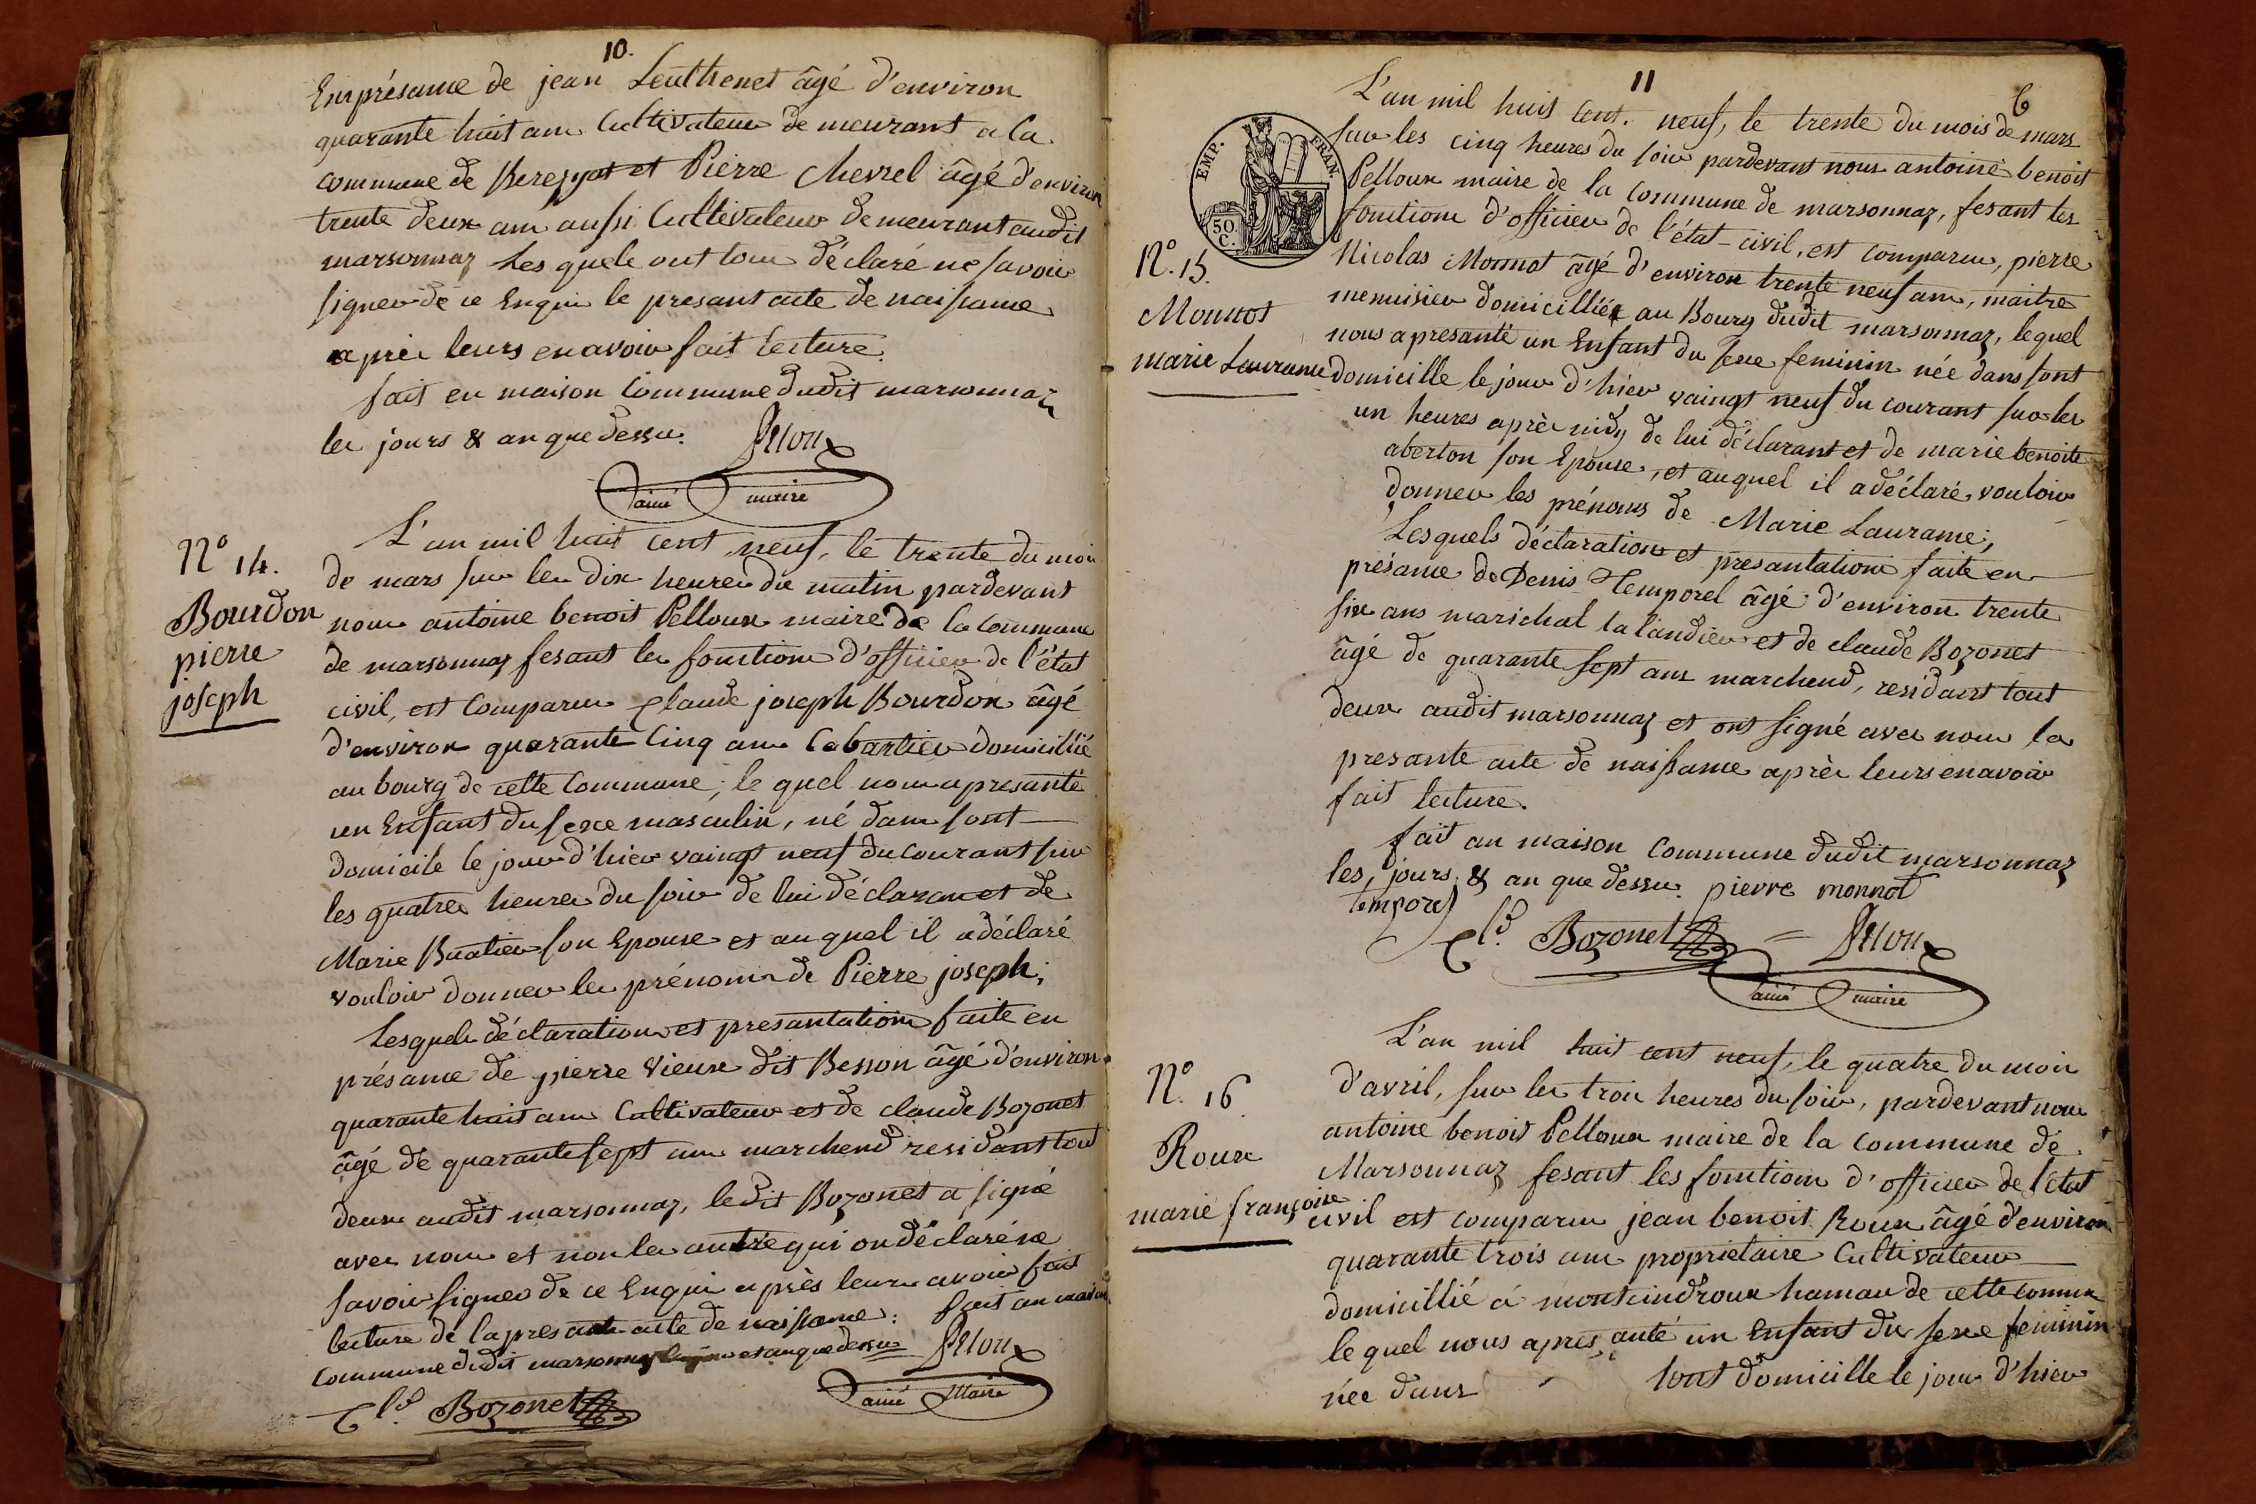 10.
En présance de jean Leuthenet âgé d'environ
quarante huit ans Cultivateur demeurant a la
commune de Bereyziat et Pierre Chevrel âgé d'environ
trente deux ans aussi Cultivateur demeurant audit
marsonnaz Lesquels ont tous déclaré ne savoir
signer de ce Enquis le presant acte de naissance
après leurs en avoir fait lecture.
fait en maison Commune dudit marsonnaz
les jours & an que dessus.
ainé maire
N° 14.
Bourdon
pierre
joseph
L'an mil huit cent neuf, le trente du mois
de mars sur les dix heures du matin pardevant
nous antoine benoit Pelloux maire de la Commune
de marsonnaz fesant les fonctions d'officier de l'état
civil, est Comparu Claude joseph Bourdon âgé
d'environ quarante Cinq ans Cabartier domicillié
au bourg de cette Commune, le quel nous a presanté
un Enfant du sexe masculin, né dans sont
domicile le jour d'hier vaingt neuf du courant sur
les quatres heures du soir de lui déclarant et de
Marie Buatier son Epouse et auquel il a déclaré
vouloir donner les prénoms de Pierre joseph;
Lesquels déclaration et presantation faite en
présance de pierre Vieux dit Besson âgé d'environ
quarante huit ans Cultivateur et de claude Bozonet
âgé de quarante sept ans marchend residant tout
deux audit marsonnaz, ledit Bozonet a signé
avec nous et non les autre qui on déclaré ne
savoir signer de ce Enquis après leurs avoir fait
lecture de la presante acte de naissance: fait an maison
Commune dudit marsonnaz les jour et an que dessus
Cl.d Bozonet
ainé Maire
11
6
EMP. FRAN.
50 C.
N° 15.
Monnot
marie Laurance
L'an mil huit Cent. neuf, le trente du mois de mars
sur les cinq heures du soir pardevant nous antoine benoit
Pelloux maire de la Commune de marsonnaz, fesant les
fonctions d'officier de l'état-civil, est Comparu, pierre
Nicolas Monnot âgé d'environ trente neuf ans, maitre
menuisier domicillié au Bourg dudit marsonnaz, lequel
nous a presanté un Enfant du sexe feminin née dans sont
domicille le jour d'hier vaingt neuf du courant sur les
un heures après midy de lui déclarant et de marie benoite
aberton son Epouse, et auquel il a déclaré vouloir
donner les prénoms de Marie Laurance;
Lesquels déclaration et presantation faite en
présance de Denis Temporel âgé d'environ trente
six ans marichal talandier et de claude Bozonet
âgé de quarante sept ans marchend, residant tout
deux audit marsonnaz et ont signé avec nous la
presante acte de naissance après leurs en avoir
fait lecture.
fait an maison Commune dudit marsonnaz
les, jours & an que dessus. pierre monnot
temporel
Cl.d Bozonet
ainé maire
N° 16
Roux
marie françoise
L'an mil huit cent neuf, le quatre du mois
d'avril, sur les trois heures du soir, pardevant nous
antoine benoit Pelloux maire de la Commune de
Marsonnaz fesant les fonctions d'officier de l'état
civil est comparu jean benoit Roux âgé d'environ
quarante trois ans proprietaire Cultivateur
domicillié á montcindroux hamau de cette commune
le quel nous a presanté un Enfant du sexe feminin
née dans sont domicille le jour d'hier